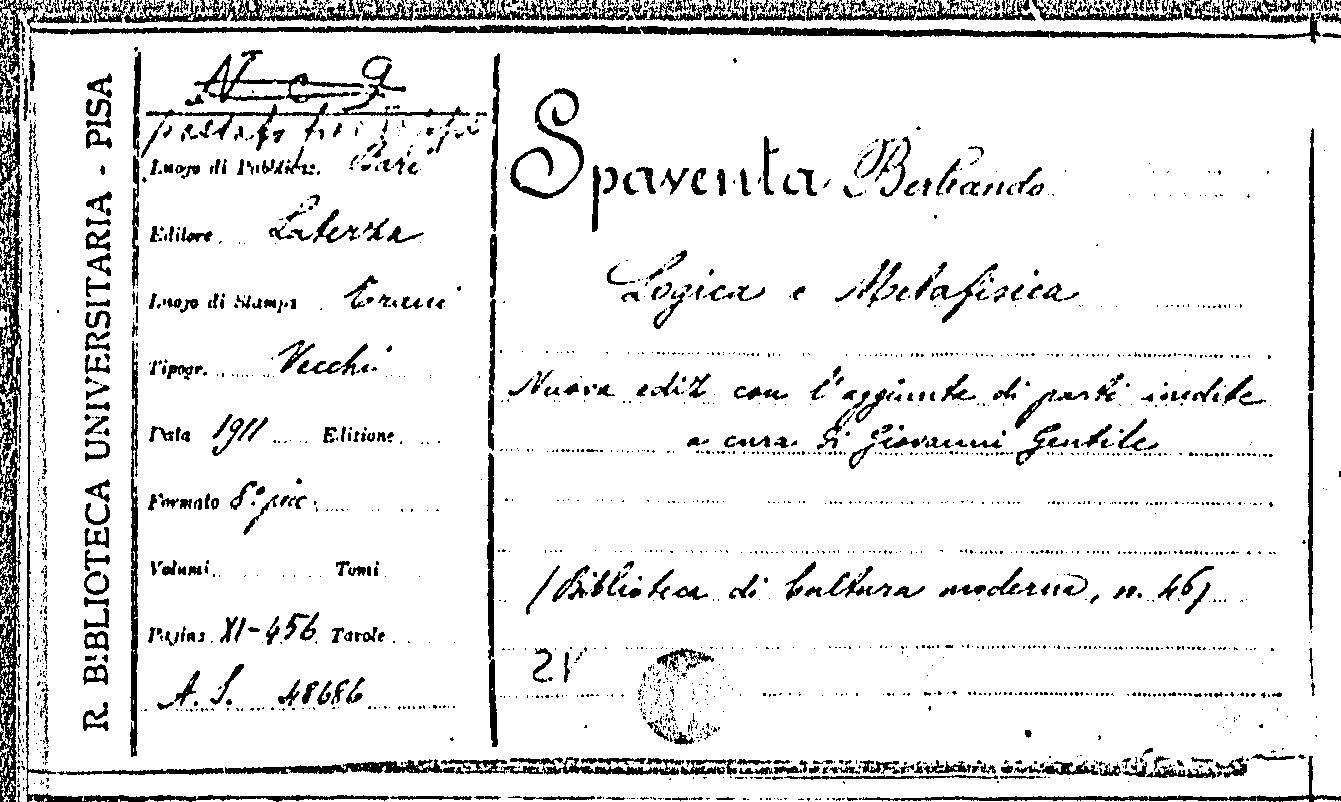 R. BIBLIOTECA UNIVERSITARIA - PISA
N c 9
Luogo di Pubblicaz. Bari
Editore Laterza
Luogo di Stampa Trani
Tipogr. Vecchi
Data 1911 Edizione
Formato 8° picc.
Volumi Tomi
Pagine XI-456 Tavole
A. S. 48686
Spaventa Bertrando
Logica e Metafisica
Nuova ediz con l'aggiunta di parti inedite
a cura di Giovanni Gentile
(Biblioteca di Cultura moderna, n. 46)